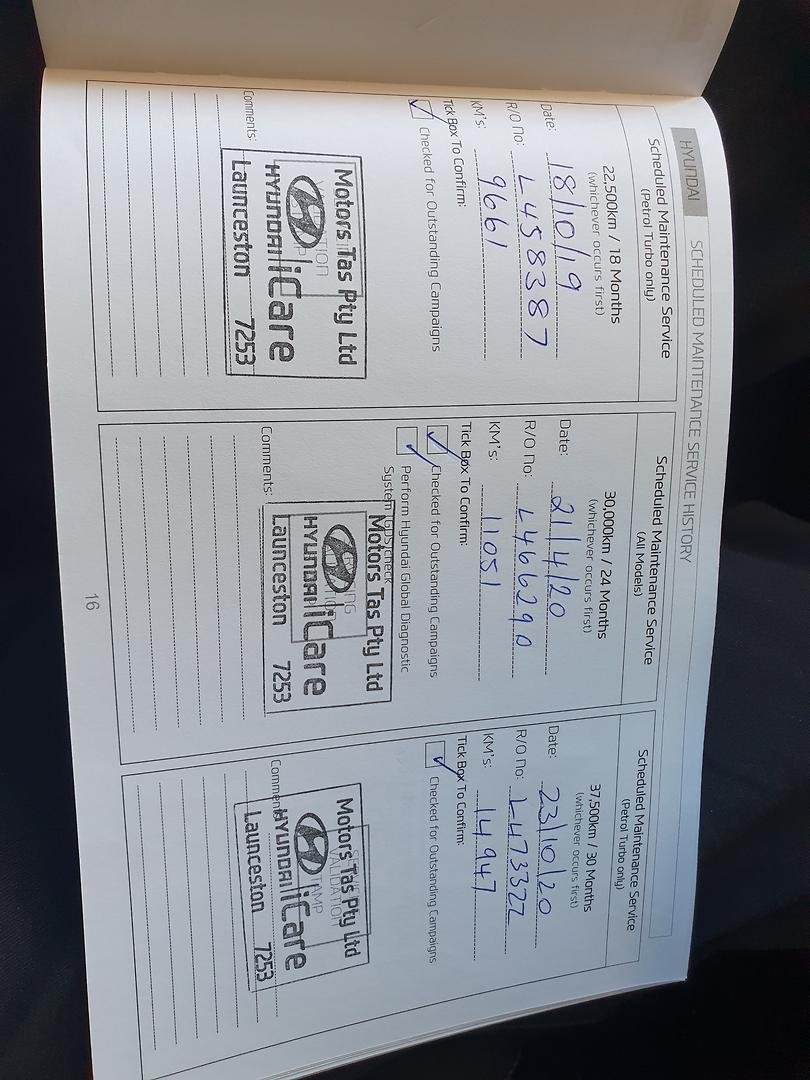 HYUNDAI SCHEDULED MAINTENANCE SERVICE HISTORY
Scheduled Maintenance Service
(Petrol Turbo only)
22,500km / 18 Months
(whichever occurs first)
Date: 18/10/19
R/O no: L458387
KM's: 9661
Tick Box To Confirm:
Checked for Outstanding Campaigns
Motors Tas Pty Ltd
HYUNDAI iCare
Launceston 7253
Comments:
Scheduled Maintenance Service
(All Models)
30,000km / 24 Months
(whichever occurs first)
Date: 21/4/20
R/O no: L466290
KM's: 11051
Tick Box To Confirm:
Checked for Outstanding Campaigns
Perform Hyundai Global Diagnostic
System (GDS) check
Motors Tas Pty Ltd
HYUNDAI iCare
Launceston 7253
Comments:
Scheduled Maintenance Service
(Petrol Turbo only)
37,500km / 30 Months
(whichever occurs first)
Date: 23/10/20
R/O no: L473322
KM's: 14947
Tick Box To Confirm:
Checked for Outstanding Campaigns
Motors Tas Pty Ltd
HYUNDAI iCare
Launceston 7253
16